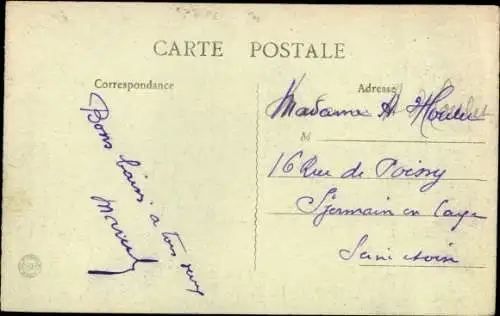 CARTE POSTALE
Correspondance
Adresse
Bons baisers a tous deux
Marcel
Madame A Houles
M
16 Rue de Poissy
St Germain en Laye
Seine et Oise